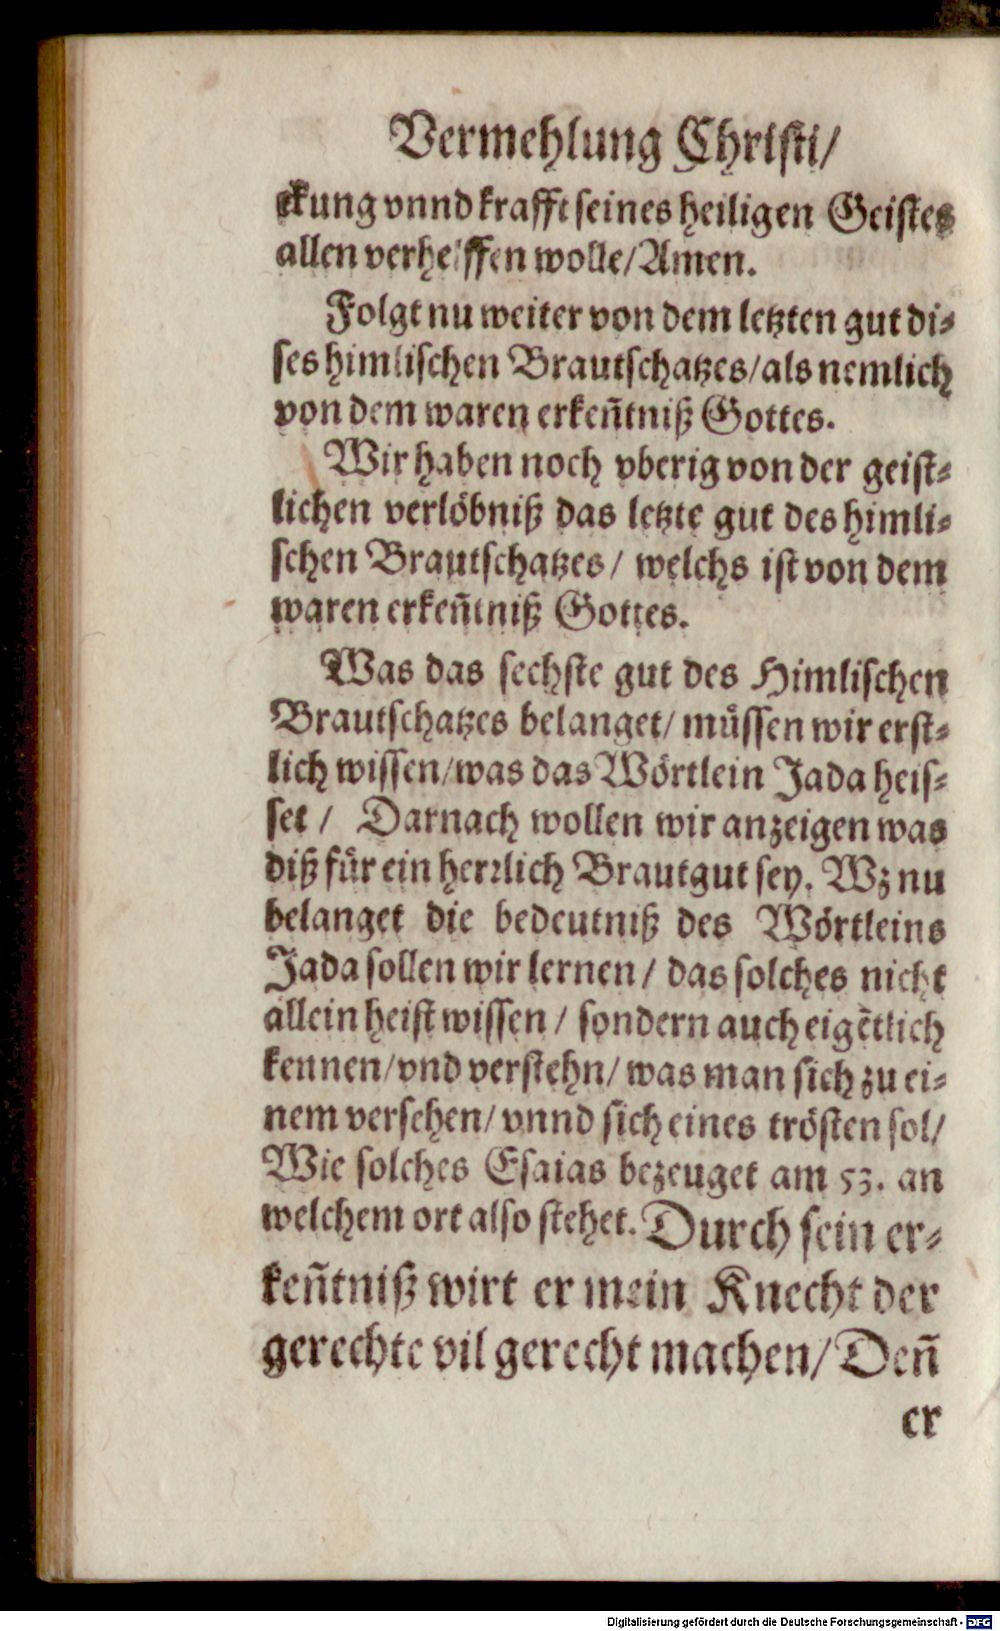 Vermehlung Christi/
ckung vnnd krafft seines heiligen Geistes
allen verheiffen wolle/Amen.
Folgt nu weiter von dem letzten gut di⸗
ses himlischen Brautschatzes/als nemlich
von dem waren erkeñtniß Gottes.
Wir haben noch vberig von der geist⸗
lichen verlöbniß das letzte gut des himli⸗
schen Brautschatzes/ welchs ist von dem
waren erkeñtniß Gottes.
Was das sechste gut des Himlischen
Brautschatzes belanget/ müssen wir erst⸗
lich wissen/was das Wörtlein Jada heis⸗
set / Darnach wollen wir anzeigen was
diß für ein herrlich Brautgut sey. Wz nu
belanget die bedeutniß des Wörtleins
Jada sollen wir lernen/ das solches nicht
allein heist wissen/ sondern auch eigẽtlich
kennen/vnd verstehn/ was man sich zu ei⸗
nem versehen/ vnnd sich eines trösten sol/
Wie solches Esaias bezeuget am 53. an
welchem ort also stehet. Durch sein er⸗
keñtniß wirt er mein Knecht der
gerechte vil gerecht machen/ Deñ
er
Digitalisierung gefördert durch die Deutsche Forschungsgemeinschaft - DFG